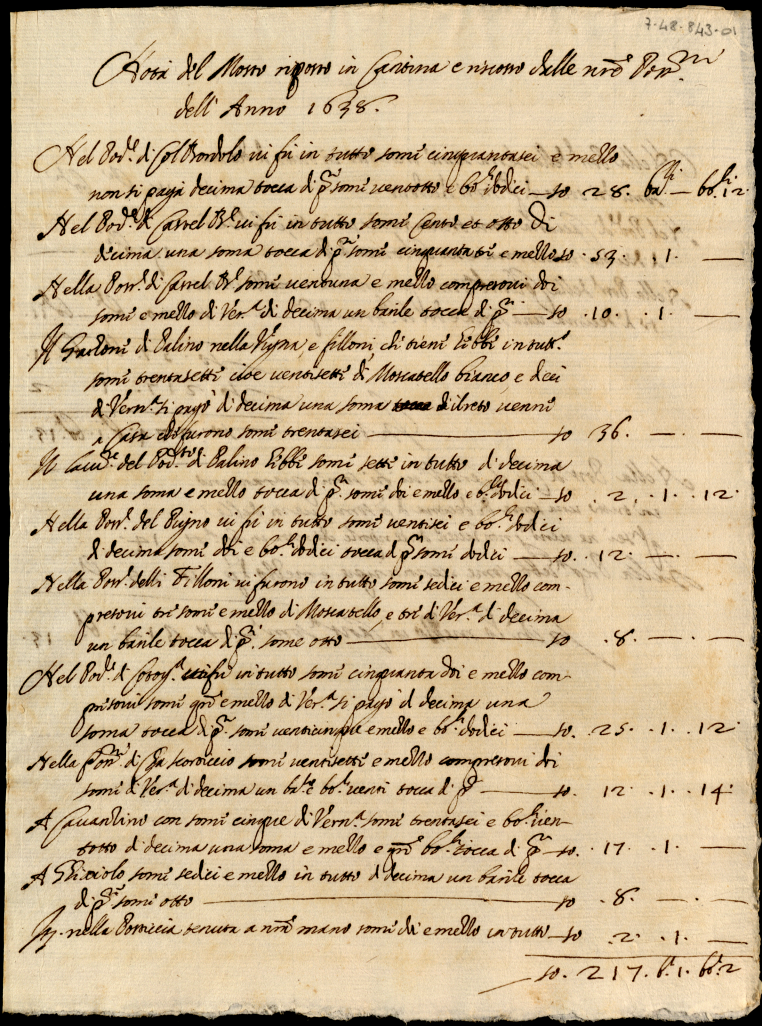 7-48-843-01
Nota del Mosto riposto in Cantina e riscosso dalle nrē Poss.ni
dell'Anno 1638.
Nel Pod.e di Col Tondolo ui fù in tutto some cinquantasei e mezzo
non si paga decima tocca di p.te some uentotto e bo.li dodici — so 28. ba.li — bo.li 12
Nel Pod.e di Castel ui fù in tutto some Cento et otto di
decima una soma tocca di p.te some cinquanta tre e mezzo so. 53. 1. —
Nella Poss.e di Castel some uentuna e mezzo compresoui doi
some e mezzo di Ver.a di decima un barile tocca di p.te — so 10. 1. —
Il Garzone di Palino nella Vigna, e filloni che tiene hebbe in tutt.o
some trentasette cioe uentisette di Moscatello bianco e deci
di Vern.a si pagò di decima una soma di resto uenne
a Casa et furono some trentasei — so 36. — . —
Il del Pod.e di Palino hebbe some sette in tutto di decima
una soma e mezzo tocca di p.te some doi e mezzo e bo.li dodici — so 2. 1. 12
Nella Poss.e del Pigno ui fù in tutto some uentisei e bo.li dodici
di decima some doi e bo.li dodici tocca di p.te some dodici — so. 12. — . —
Nella Poss.e delli Filloni ui furono in tutto some sedici e mezzo com-
presoui tre some e mezzo di Moscatello, e tre di Ver.a di decima
un barile tocca di p.te some otto — so .8. — . —
Nel Pod.e di ui fù in tutto some cinquanta doi e mezzo com-
presoui some e mezzo di Ver.a si pagò di decima una
soma tocca di p.te some uenticinque e mezzo e bo.li dodici — so. 25. 1. 12
Nella Poss.e di some uentisette e mezzo compresoui doi
some di Ver.a di decima un ba.le e bo.li uenti tocca di p.te — so. 12. 1. 14
A Cauantino con some cinque di Vern.a some trentasei e bo.li uen-
totto di decima una soma e mezzo e bo.li tocca di p.te — so. 17. 1. —
A Ghiaciolo some sedici e mezzo in tutto di decima un barile tocca
di p.te some otto — so .8. — . —
nella tenuta a nrā mano some doi e mezzo in tutto — so .2. 1. —
so. 217. b.li 1. bo.li 2